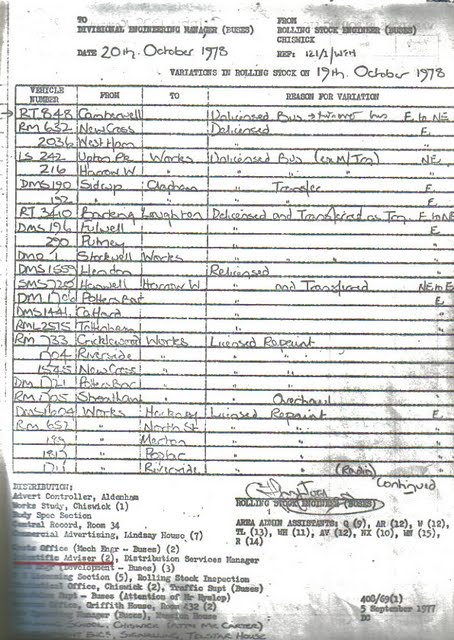 TO FROM
DIVISIONAL ENGINEERING MANAGER (BUSES) ROLLING STOCK ENGINEER (BUSES)
CHISWICK
DATE 20th October 1978 REF: 121/1/WJH
VARIATIONS IN ROLLING STOCK ON 19th October 1978
VEHICLE NUMBER FROM TO REASON FOR VARIATION
RT 848 Camberwell Delicensed Bus → bus E to NE
RM 632 New Cross Delicensed E
2036 West Ham " "
LS 242 Upton Pk Works Delicensed Bus (ex M/Trn) NE
216 Harrow W " "
DMS 190 Sidcup Clapham " Transfer E
152 " " " " E
RT 3410 Barking Loughton Delicensed and Transferred as Trn. E to NE
DMS 196 Fulwell " E
290 Putney "
DMO 1 Stockwell Works "
DMS 1559 Hendon Relicensed
SMS 725 Hanwell Harrow W " and Transferred NE to E
DM 1706 Potters Bar " E
DMS 1441 Catford " "
RML 2575 Tottenham " "
RM 733 Cricklewood Works Licensed Repaint
1704 Riverside " "
1545 New Cross " "
DM 1721 Potters Bar " "
RM 1705 Streatham " Overhaul
DMS 1604 Works Hackney Licensed Repaint E
RM 652 " North St " "
189 " Merton " "
1817 " Poplar " "
1711 " Riverside " (Radio) "
continued
DISTRIBUTION:
Advert Controller, Aldenham
Works Study, Chiswick (1)
Body Spec Section
Central Record, Room 34
Commercial Advertising, Lindsay House (7)
Office (Mech Engr - Buses) (2)
Scientific Adviser (2), Distribution Services Manager
(Development - Buses) (3)
Licensing Section (5), Rolling Stock Inspection
Office, Chiswick (2), Traffic Supt (Buses)
Supt - Buses (Attention of Mr Hyslop)
Office, Griffith House, Room 432 (2)
Manager (Buses), Mansion House
SCHOOL CHISWICK (ATTN MR CARTER)
SIGNALLING TELSTAR HOUSE
ROLLING STOCK ENGINEER (BUSES)
AREA ADMIN ASSISTANTS: Q (9), AR (12), W (12),
TL (13), WH (11), AV (12), NX (10), WN (15),
R (14)
400/69(1)
5 September 1977
DG